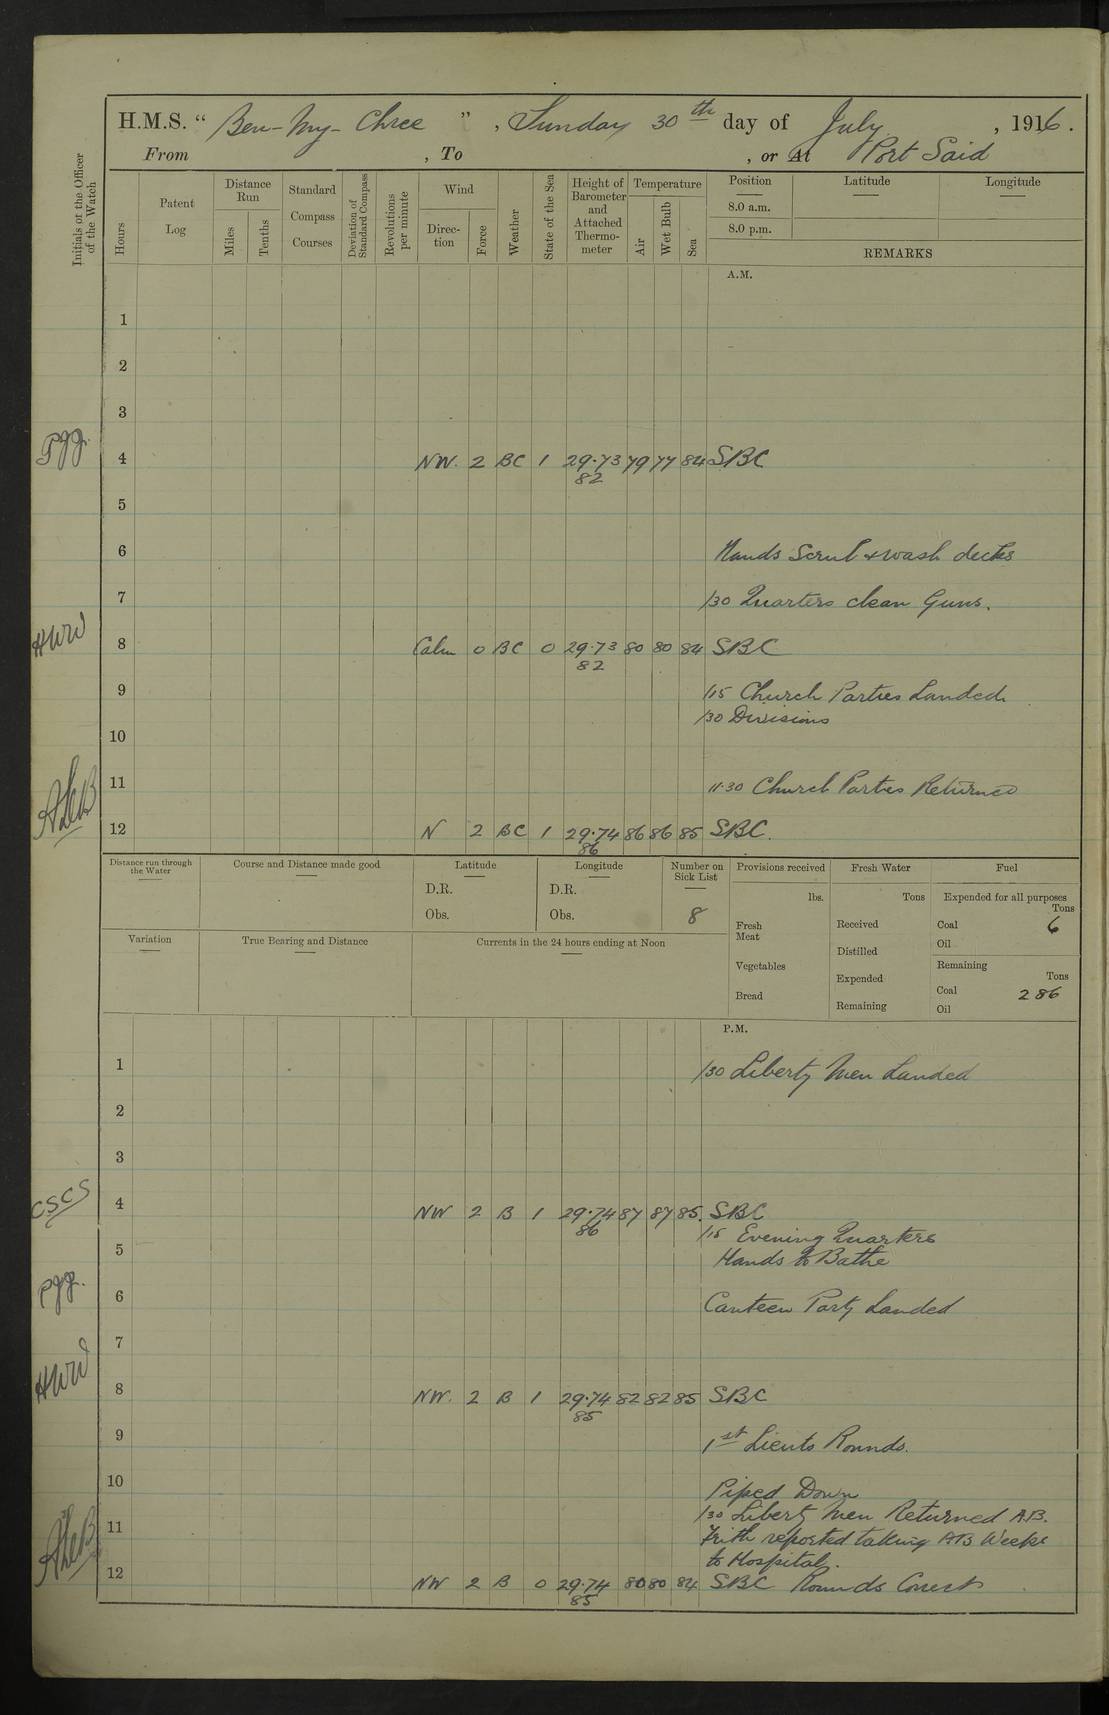 H.M.S. " Ben-My-Chree " , Sunday 30th day of July , 1916.
From , To , or At Port Said
Initials of the Officer of the Watch
Hours
Patent Log
Distance Run
Miles
Tenths
Standard Compass Courses
Deviation of Standard Compass
Revolutions per minute
Wind
Direction
Force
Weather
State of the Sea
Height of Barometer and Attached Thermometer
Temperature
Air
Wet Bulb
Sea
Position
8.0 a.m.
8.0 p.m.
Latitude
Longitude
REMARKS
A.M.
1
2
3
4 NW. 2 BC 1 29.73 79 77 84 SBC
82
5
6 Hands Scrub & wash decks
7 /30 Quarters clean Guns.
HWW
8 Calm 0 BC 0 29.73 80 80 84 SBC
82
9 /15 Church Parties Landed
/30 Divisions
10
11 11.30 Church Parties Returned
12 N 2 BC 1 29.74 86 86 85 SBC.
86
Distance run through the Water
Course and Distance made good
Latitude
D.R.
Obs.
Longitude
D.R.
Obs.
Number on Sick List
8
Provisions received
lbs.
Fresh Meat
Vegetables
Bread
Fresh Water
Tons
Received
Distilled
Expended
Remaining
Fuel
Expended for all purposes
Tons
Coal 6
Oil
Remaining
Tons
Coal 286
Oil
Variation
True Bearing and Distance
Currents in the 24 hours ending at Noon
P.M.
1 /30 Liberty Men Landed
2
3
CSCS
4 NW 2 B 1 29.74 87 87 85. SBC
86 /15 Evening Quarters
5 Hands to Bathe
6 Canteen Party Landed
7
HWW
8 NW. 2 B 1 29.74 82 82 85 SBC
85
9 1st Lieuts Rounds.
10 Piped Down
/30 Liberty Men Returned A.B.
11 Frith reported taking AB Weeks
to Hospital.
12 NW 2 B 0 29.74 80 80 84 SBC Rounds Correct
85